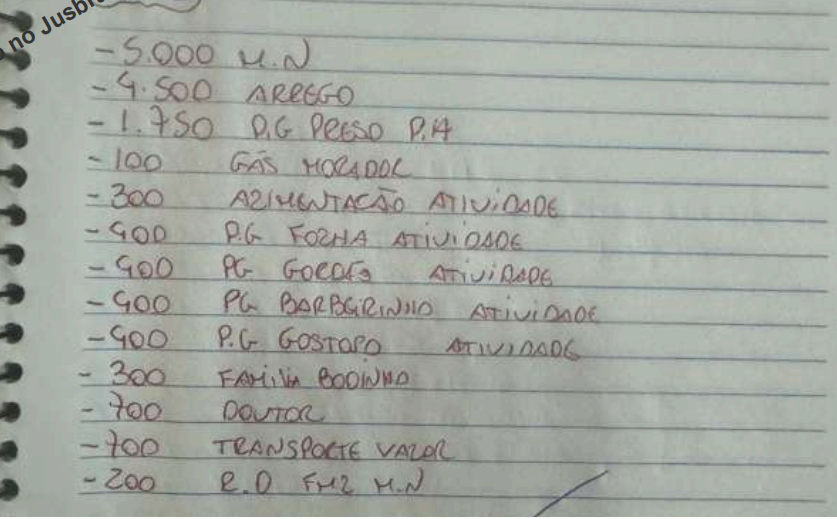 no Jusbr
-5.000 M.N
-4.500 ARREGO
-1.750 P.G PRESO P.H
-100 GÁS MORADOR
-300 ALIMENTAÇÃO ATIVIDADE
-400 P.G FOLHA ATIVIDADE
-400 PG ATIVIDADE
-400 PG BARBEIRINHO ATIVIDADE
-400 P.G GOSTOPO ATIVIDADE
-300 FAMILIA BODINHO
-700 DOUTOR
-700 TRANSPORTE VALOR
-200 M.N